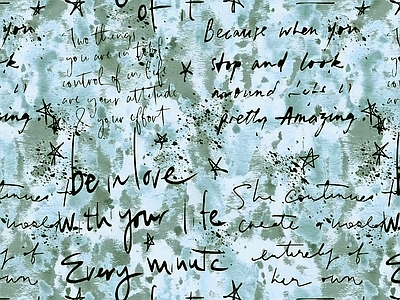 of it
Two things
you are in total
control of in life
are your attitude
& your effort
Because when you
stop and look
around
pretty Amazing.
you
look
Amazing.
be in love
with your life
Every minute
She continues to
create a world
entirely of
her own
continues to
a world
entirely of
own